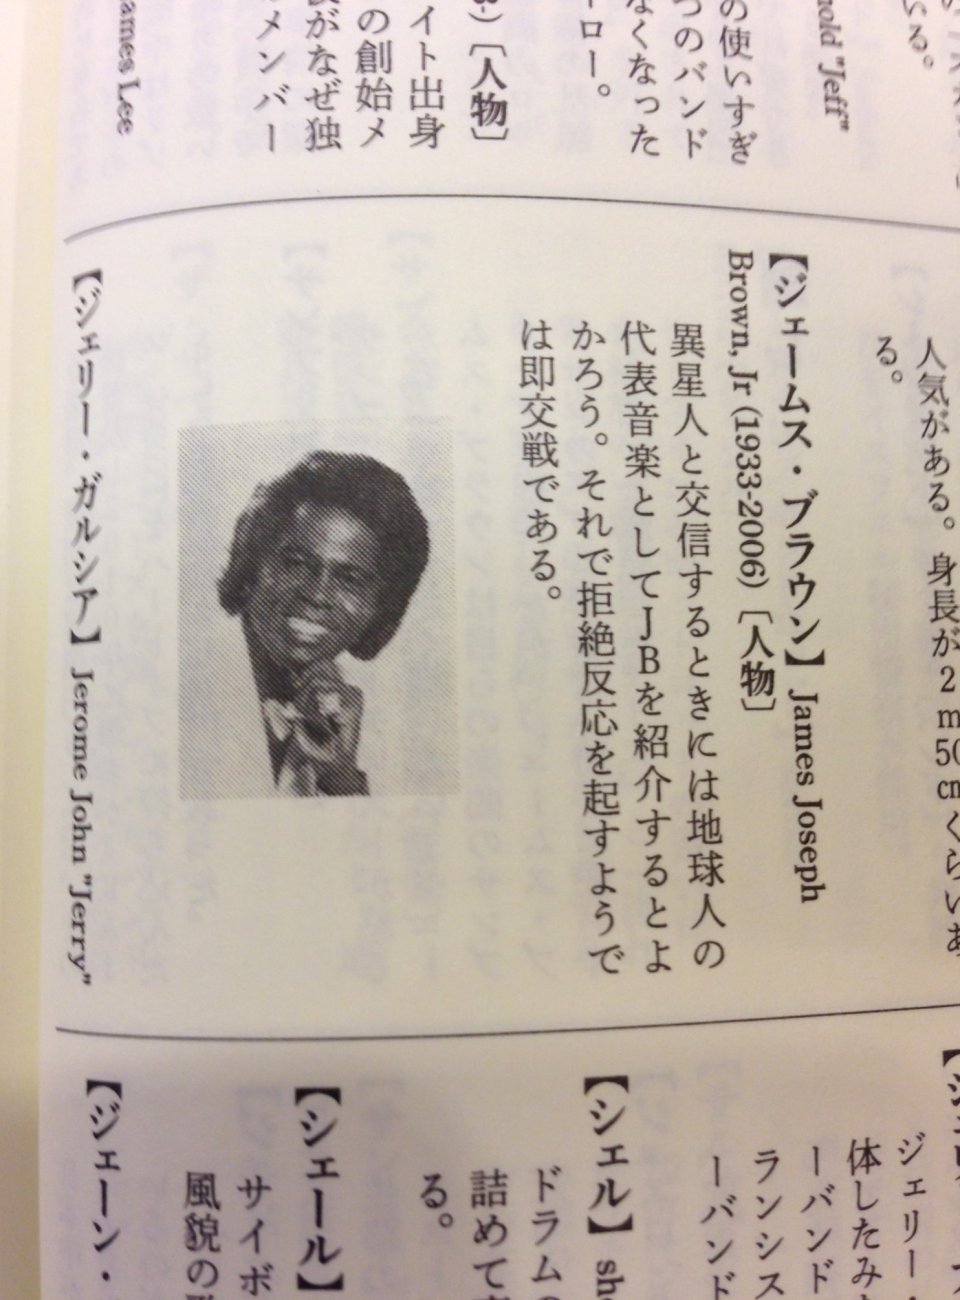 いる。
nold "Jeff"
の使いすぎ
つのバンド
なくなった
ーロー。
〔人物〕
イト出身
の創始メ
がなぜ独
メンバー
ames Lee
人気がある。身長が2m50cmくらいあ
る。
【ジェームス・ブラウン】James Joseph
Brown, Jr (1933-2006)〔人物〕
異星人と交信するときには地球人の
代表音楽としてJBを紹介するとよ
かろう。それで拒絶反応を起すようで
は即交戦である。
【ジェリー・ガルシア】Jerome John "Jerry"
ジェリー・
体したみ
ーバンド
ランシス
ーバンド
【シェル】she
ドラムの
詰めて
る。
【シェール】
サイボ
風貌の
【ジェーン・